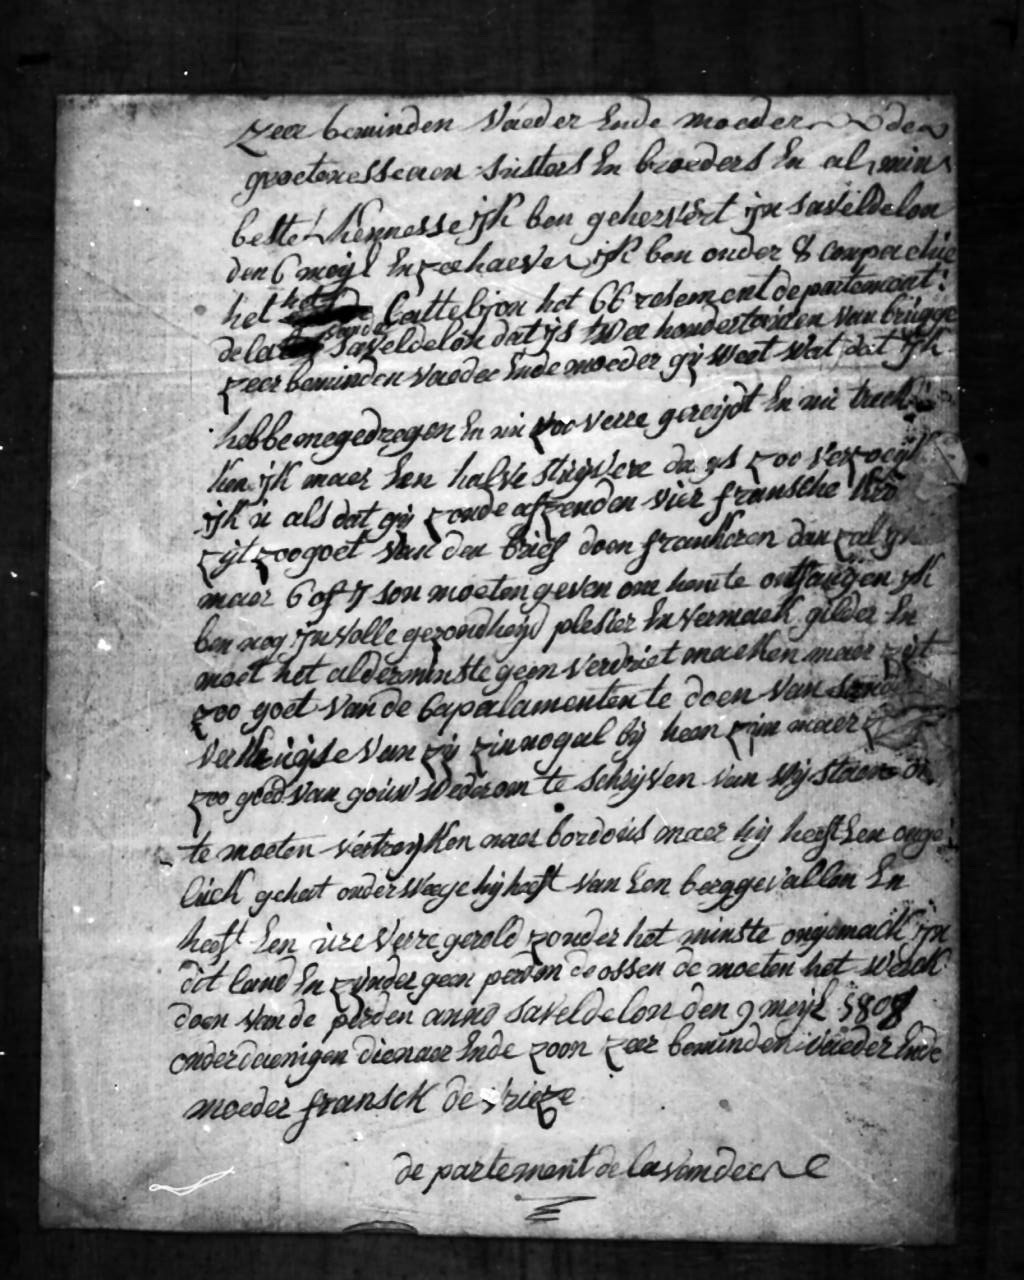 zeer beminden váeder Ende moeder de
groetenesse aen susters En broeders En al min
beste kennesse ijk ben geherivert ijn saveldelon
den 6 meijl En zee haeve ijk ben onder 8 compachie
het het Cattelijon het 66 resement departemant:
dela sande saveldelon dat ijs twee hondert uiren van brugge
zeer beminden vaeder Ende moeder gij weet wat dat ijk
hebbe megedregen En nu zoo verre gereijst En nu treck
ken ijk maer Een halve stuijvere da ijs zoo verzoeijk
ijk u als dat gij zoude afzenden vier fransche kro
zijt zoo goet van den brief doen frankeren dan zal ijk
maer 6 of 7 sou moeten geven om hem te ontfangen ijk
ben nog ijn volle gezondheijd plesier En vermaek gilder En
moet het alderminste geen verdriet maeken maer zijt
zoo goet van de Capelamenten te doen van
van zij zin nogal bij heen zijn maer
zoo goed van gouw wederom te schrijven van wij staen
te moeten vertreijken naer bordous maer hij heeft Een onge
luck gehat onder weege hij heeft van Een berg gevallen En
heeft Een ure verre gerold zonder het minste ongemack ijn
dit land En zijnder geen perden de ossen de moeten het werck
doen van de perden anno saveldelon den 9 meijl 1808
onderdaenigen dienaer Ende zoon zeer beminden váeder Ende
moeder fransck de vrieze
departement de lavandee